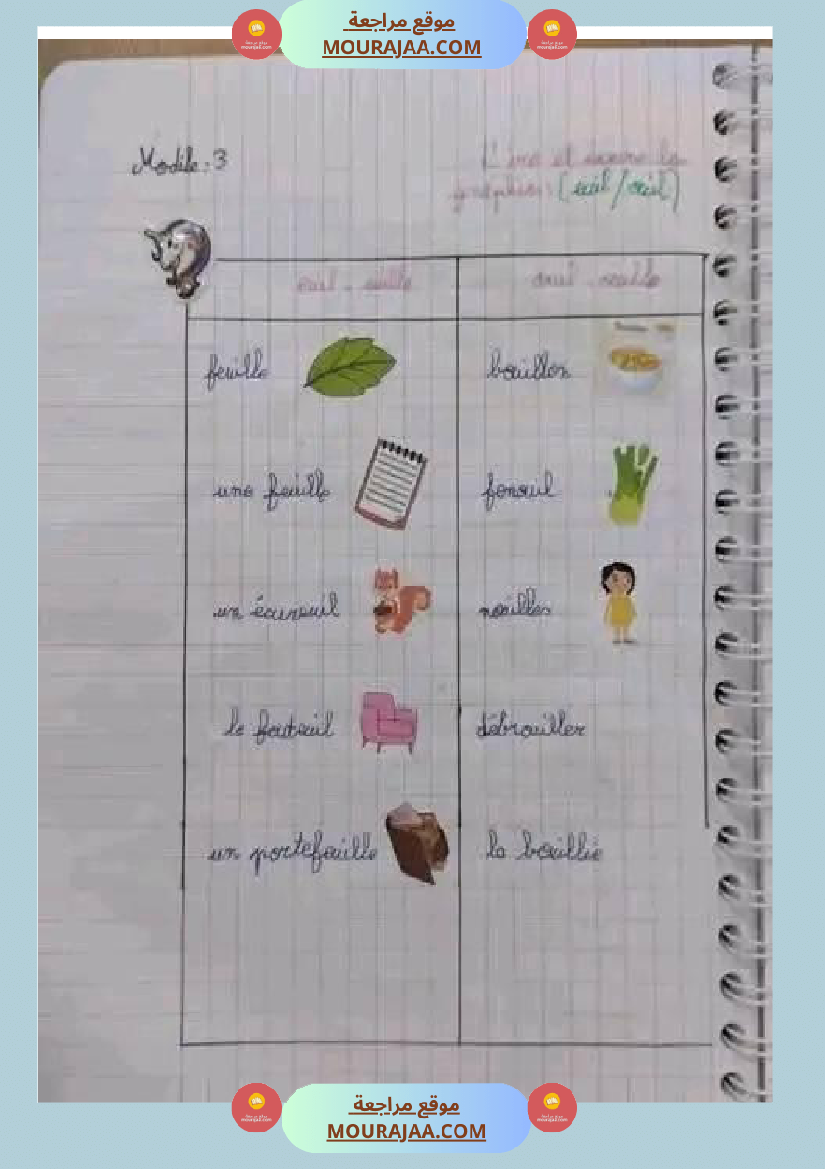 موقع مراجعة
MOURAJAA.COM
Module : 3
Lire et écrire la
graphies (euil/ouil)
euil - euille
ouil - ouille
feuille
bouillon
une feuille
fenouil
un écureuil
nouilles
le fauteuil
débrouiller
un portefeuille
la bouillie
موقع مراجعة
MOURAJAA.COM